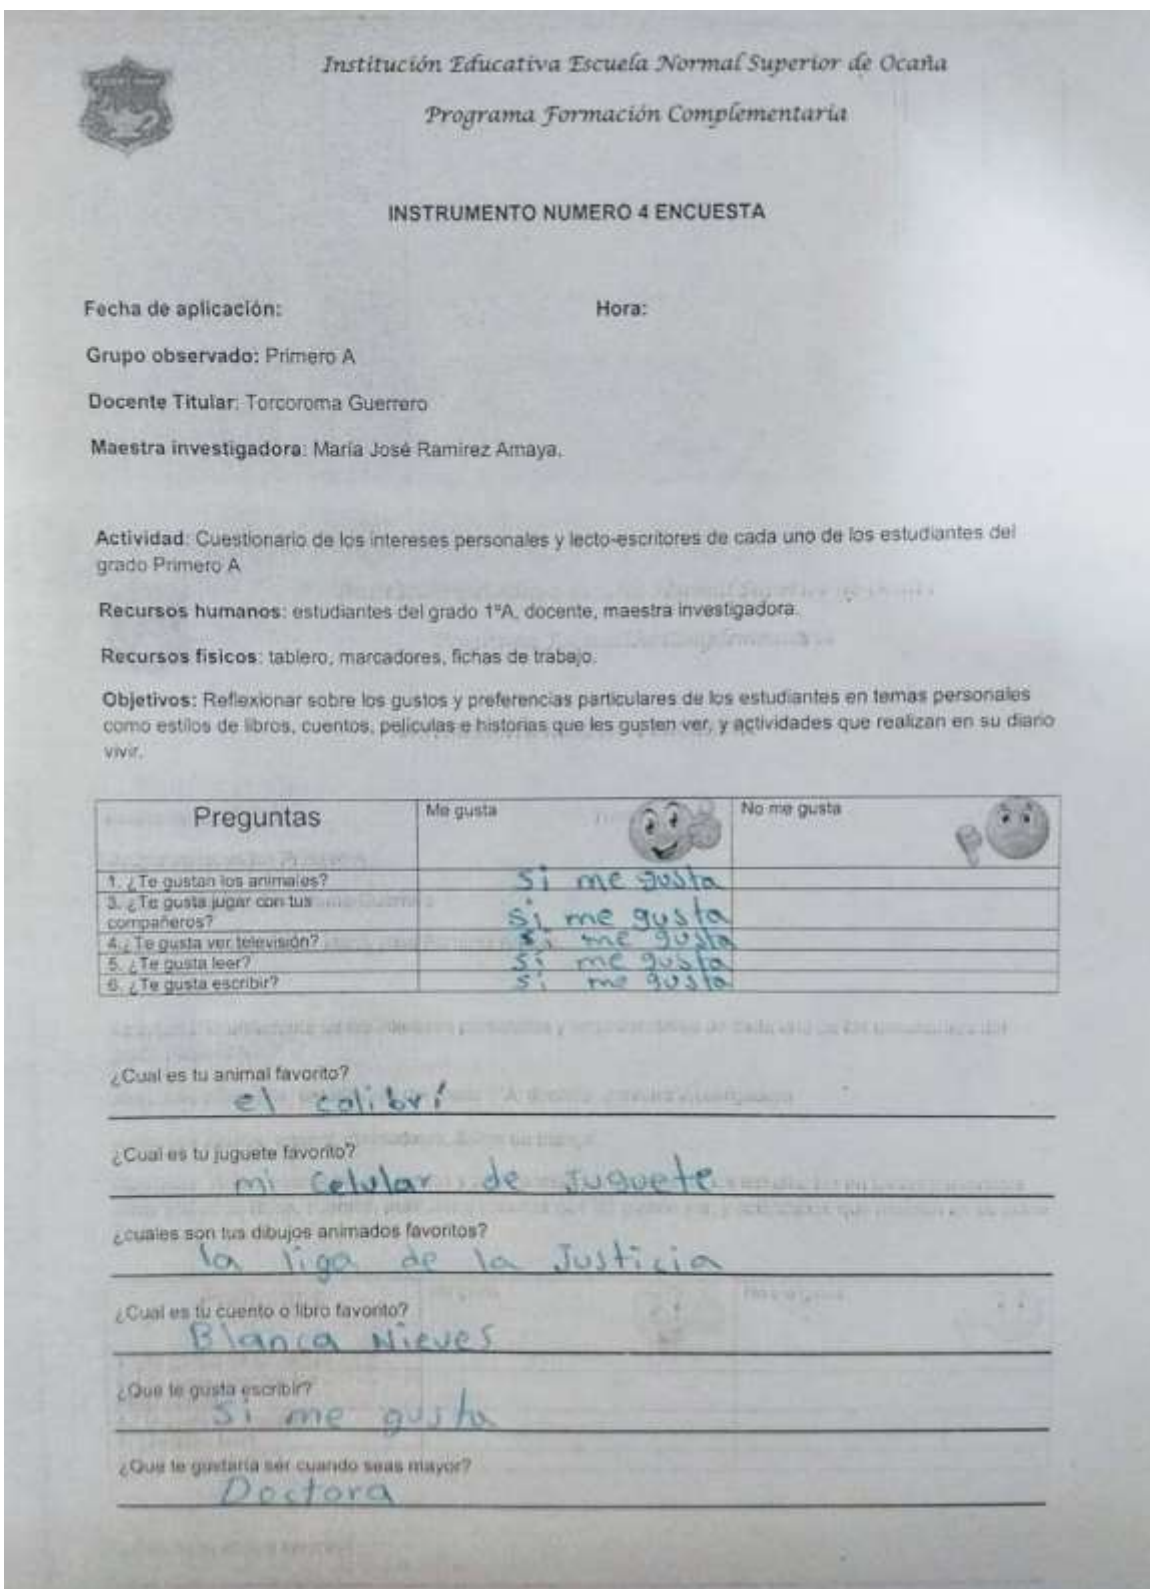 Institución Educativa Escuela Normal Superior de Ocaña
Programa Formación Complementaria
INSTRUMENTO NUMERO 4 ENCUESTA
Fecha de aplicación: Hora:
Grupo observado: Primero A
Docente Titular: Torcoroma Guerrero
Maestra investigadora: María José Ramirez Amaya.
Actividad: Cuestionario de los intereses personales y lecto-escritores de cada uno de los estudiantes del
grado Primero A
Recursos humanos: estudiantes del grado 1ºA, docente, maestra investigadora.
Recursos físicos: tablero, marcadores, fichas de trabajo.
Objetivos: Reflexionar sobre los gustos y preferencias particulares de los estudiantes en temas personales
como estilos de libros, cuentos, películas e historias que les gusten ver, y actividades que realizan en su diario
vivir.
Preguntas Me gusta No me gusta
1. ¿Te gustan los animales? Si me gusta
3. ¿Te gusta jugar con tus
compañeros? Si me gusta
4.¿Te gusta ver televisión? Si me gusta
5. ¿Te gusta leer? Si me gusta
6. ¿Te gusta escribir? Si me gusta
¿Cual es tu animal favorito?
el colibrí
¿Cual es tu juguete favorito?
mi celular de Juguete
¿cuales son tus dibujos animados favoritos?
la liga de la Justicia
¿Cual es tu cuento o libro favorito?
Blanca Nieves
¿Que te gusta escribir?
Si me gusta
¿Que te gustaría ser cuando seas mayor?
Doctora